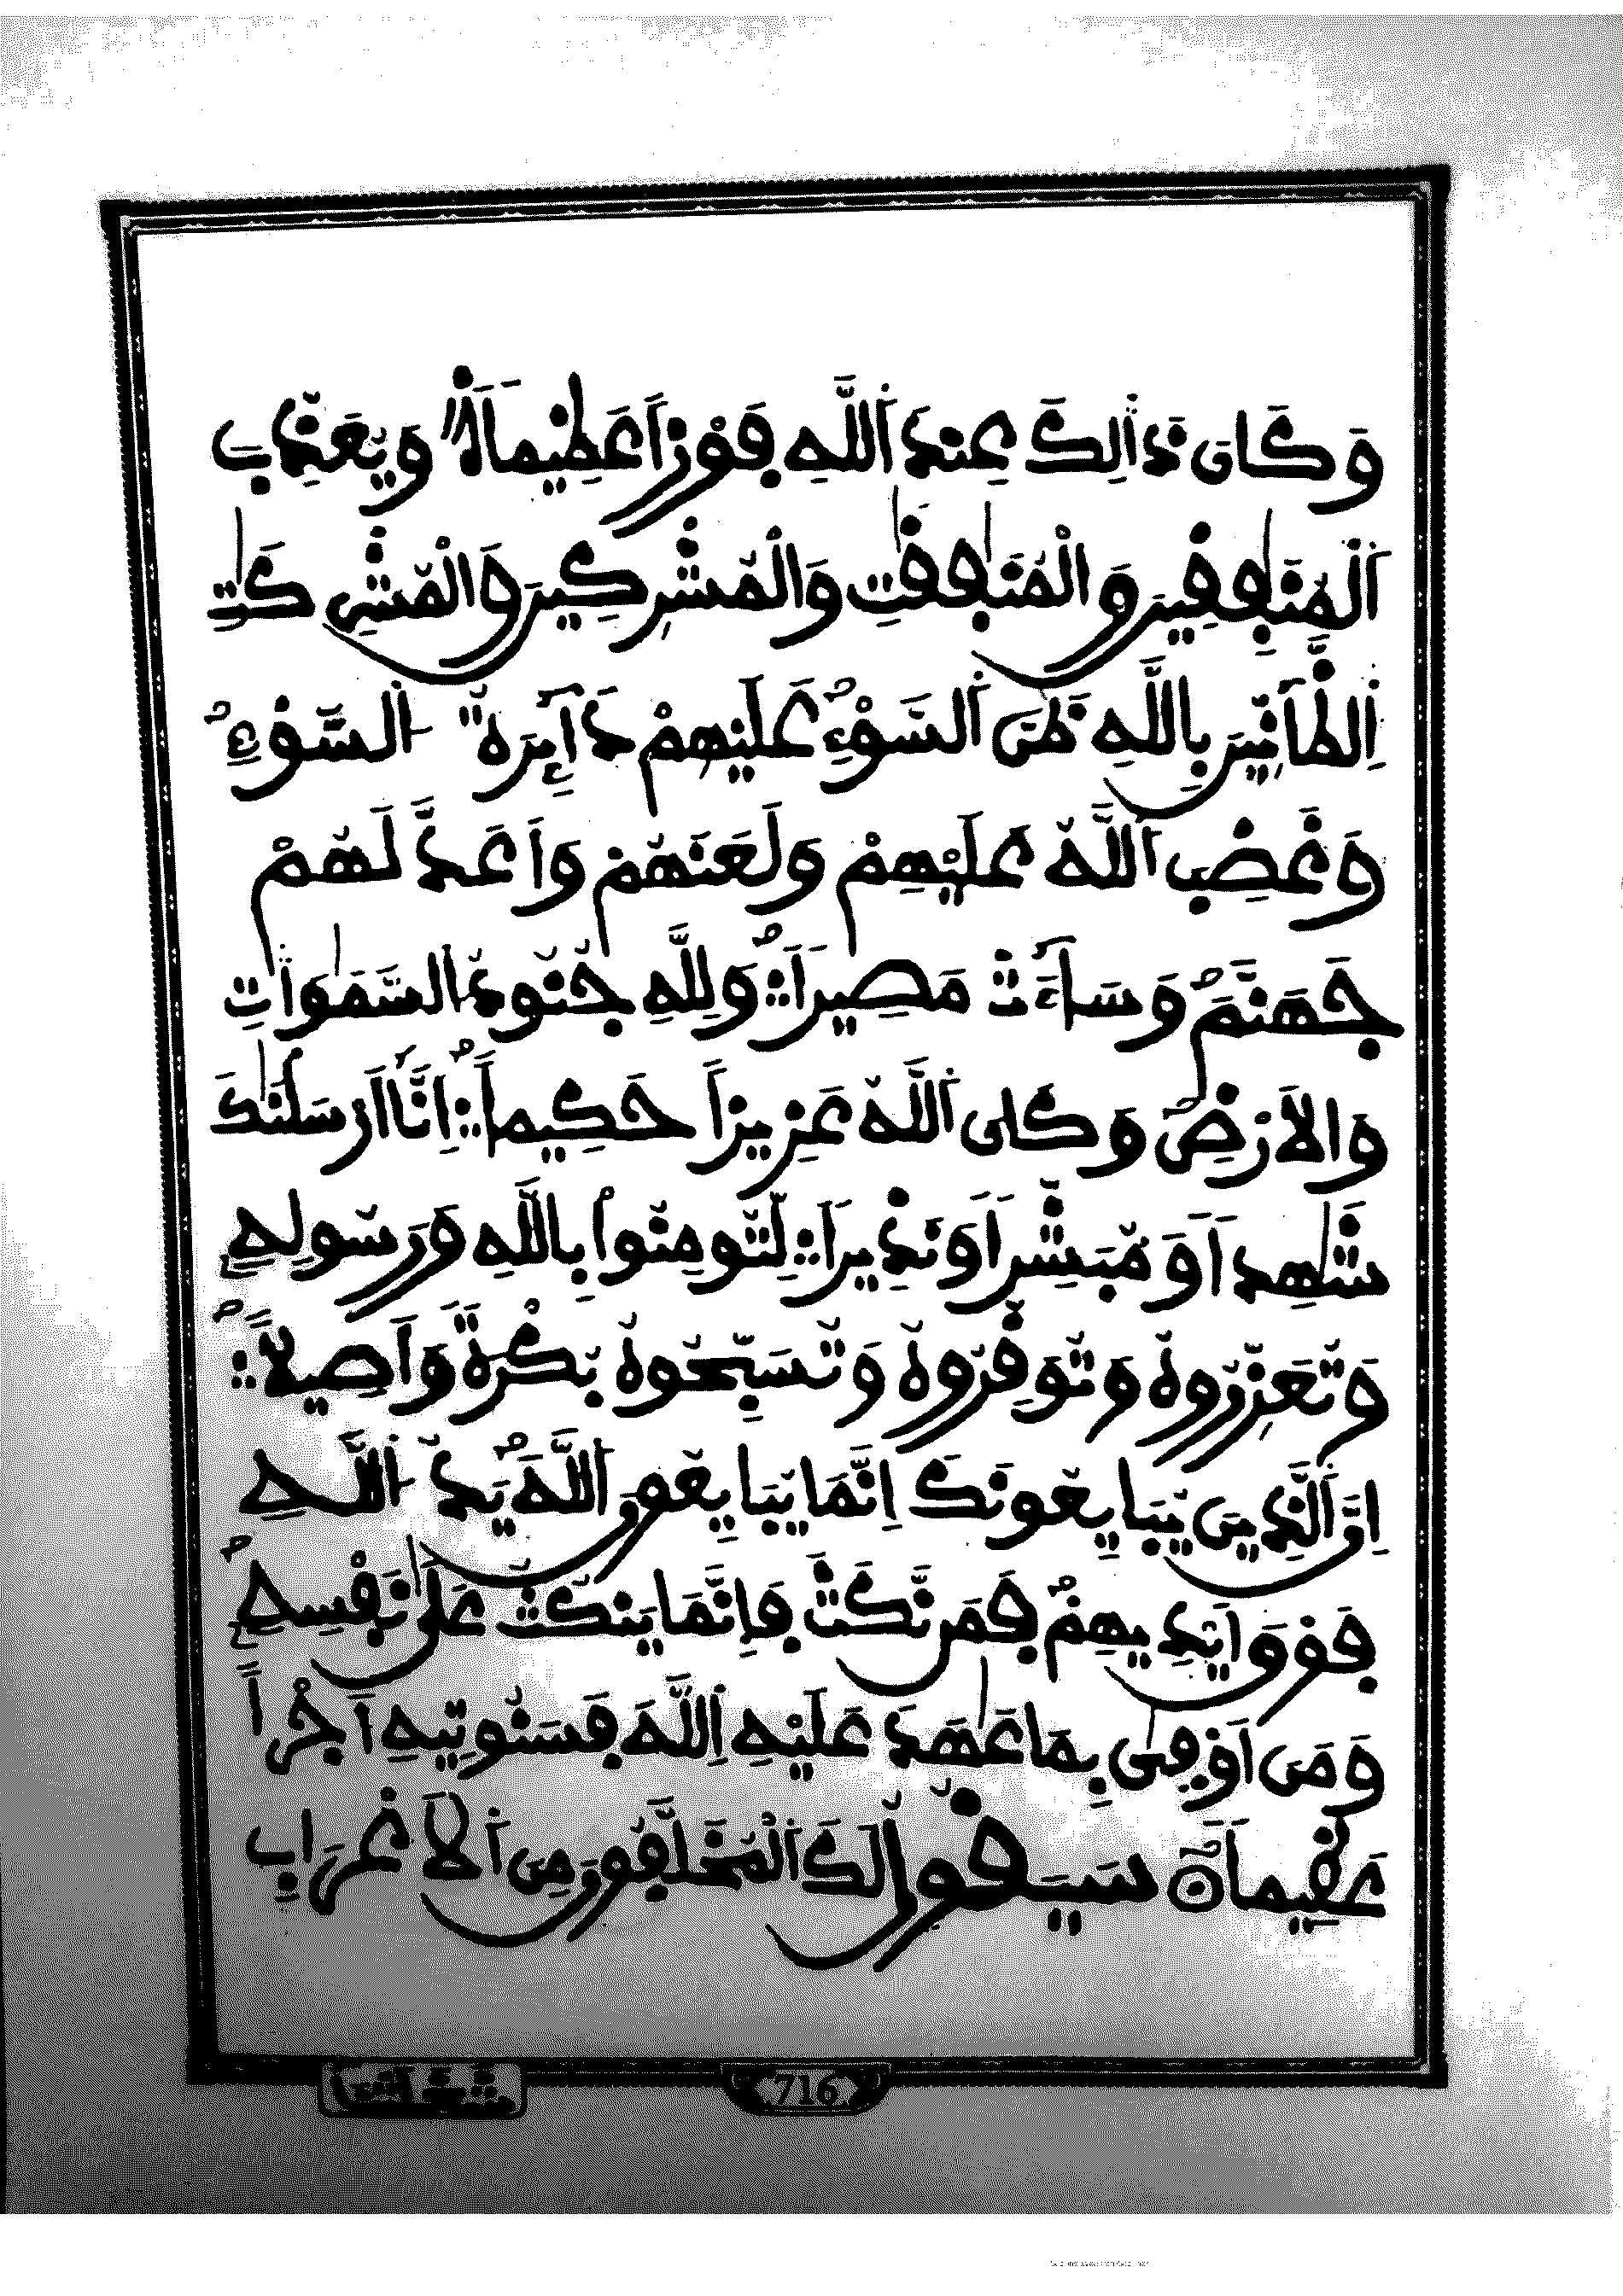 وَكَانَ ذَٰلِكَ عِندَ اَللَّهِ فَوْزاً عَظِيماً وَيُعَذِّبَ
اَلْمُنَٰفِقِينَ وَالْمُنَٰفِقَٰتِ وَالْمُشْرِكِينَ وَالْمُشْرِكَٰتِ
اِلظَّآنِّينَ بِاللَّهِ ظَنَّ اَلسَّوْءِ عَلَيْهِمْ دَآئِرَةُ اُلسَّوْءِ
وَغَضِبَ اَللَّهُ عَلَيْهِمْ وَلَعَنَهُمْ وَأَعَدَّ لَهُمْ
جَهَنَّمَ وَسَآءَتْ مَصِيراً وَلِلهِ جُنُودُ اُلسَّمَٰوَٰتِ
وَالْأَرْضِ وَكَانَ اَللَّهُ عَزِيزاً حَكِيماً إِنَّآ أَرْسَلْنَٰكَ
شَٰهِداً وَمُبَشِّراً وَنَذِيراً لِّتُومِنُواْ بِاللَّهِ وَرَسُولِهِ
وَتُعَزِّرُوهُ وَتُوَقِّرُوهُ وَتُسَبِّحُوهُ بُكْرَةً وَأَصِيلاً
إِنَّ اَلَّذِينَ يُبَايِعُونَكَ إِنَّمَا يُبَايِعُونَ اَللَّهَ يَدُ اُللَّهِ
فَوْقَ أَيْدِيهِمْ فَمَن نَّكَثَ فَإِنَّمَا يَنكُثُ عَلَىٰ نَفْسِهِ
وَمَنَ اَوْفَىٰ بِمَا عَٰهَدَ عَلَيْهِ اِللَّهَ فَسَنُوتِيهِ أَجْراً
عَظِيماً سَيَقُولُ لَكَ اَلْمُخَلَّفُونَ مِنَ اَلْأَعْرَابِ
716